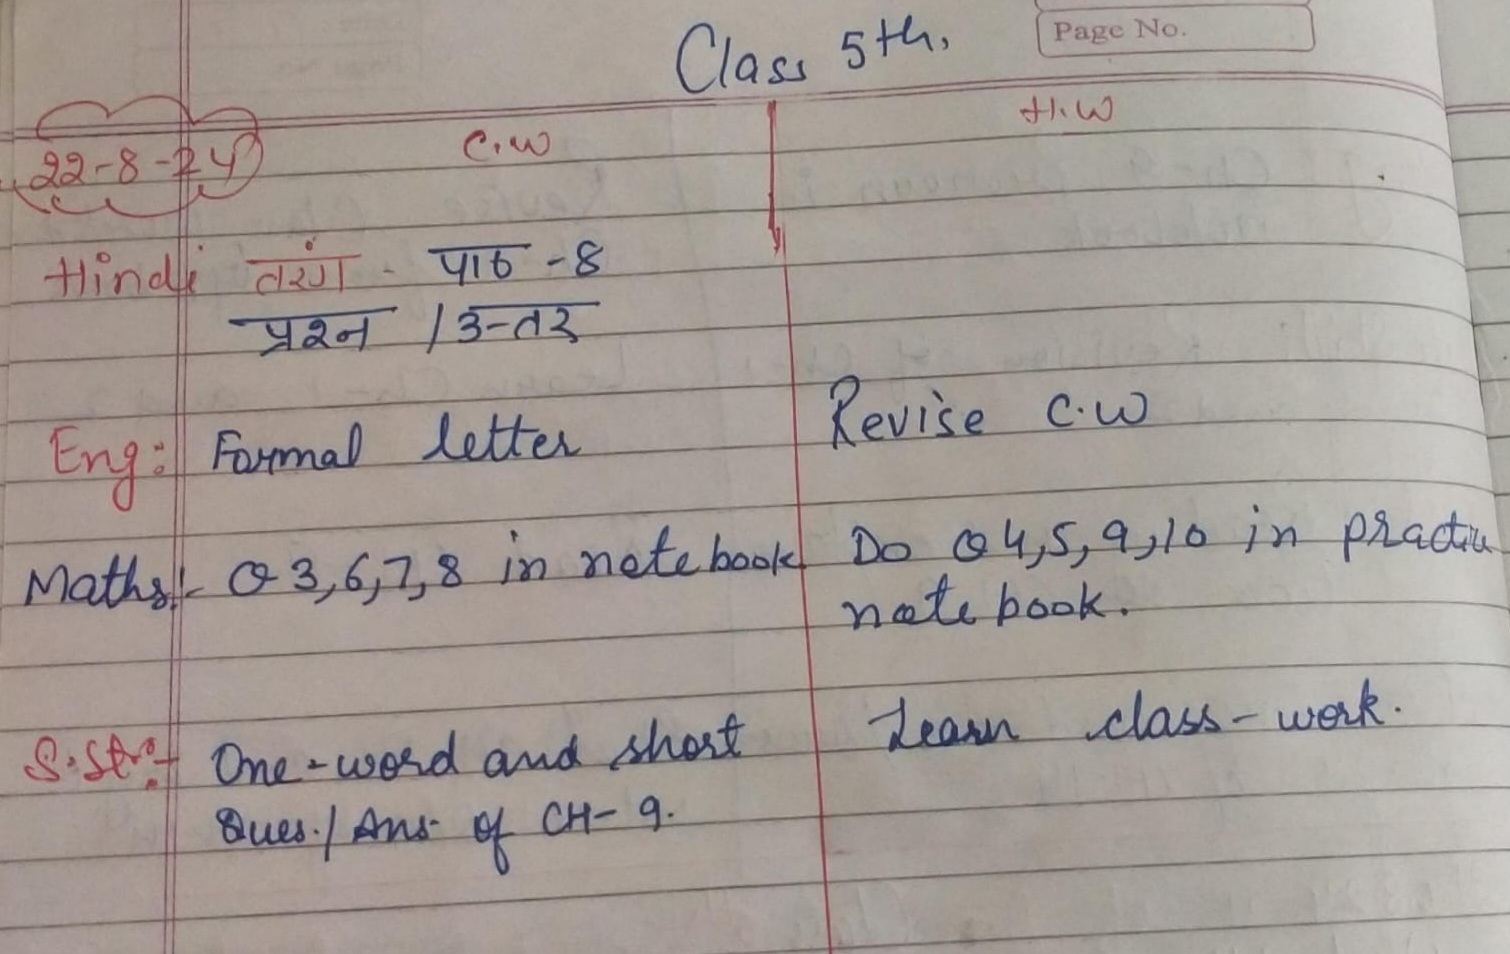 Class 5th.
Page No.
22-8-24 C.W H.W
Hindi तरंग - पाठ - 8
प्रश्न / उत्तर
Eng: Formal letter Revise C.W
Maths:- Q 3,6,7,8 in notebook Do Q 4,5,9,10 in practice
notebook.
S.St:- One-word and short Learn class-work.
Ques./Ans. of CH-9.